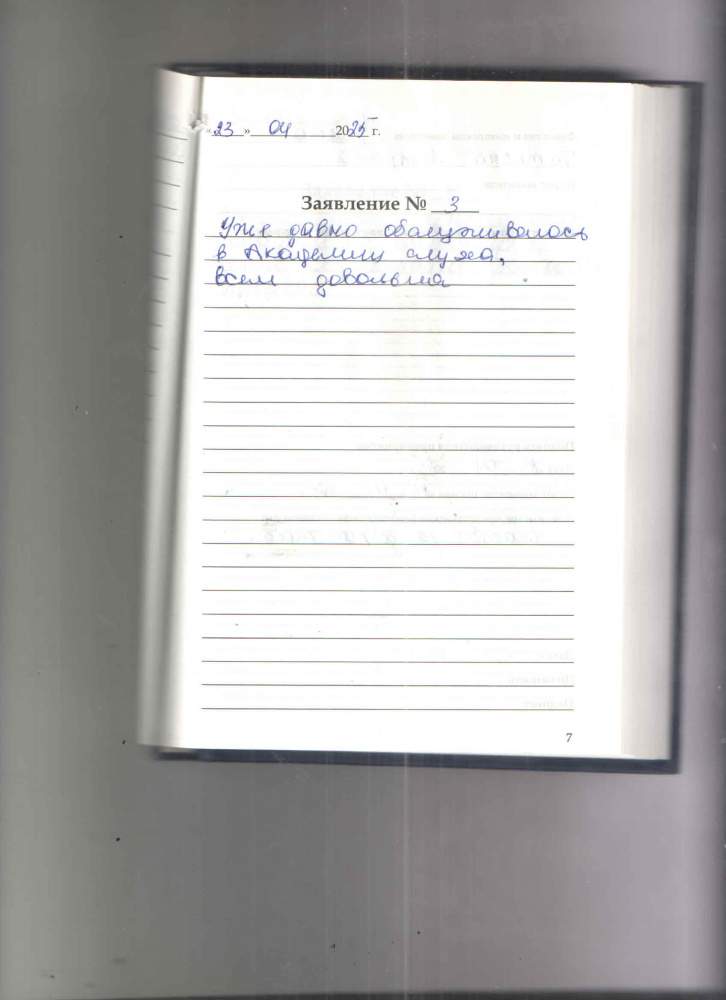 «23» 04 2025 г.
Заявление № 3
Уже давно обслуживалась
в Академии слуха,
всем довольна
7